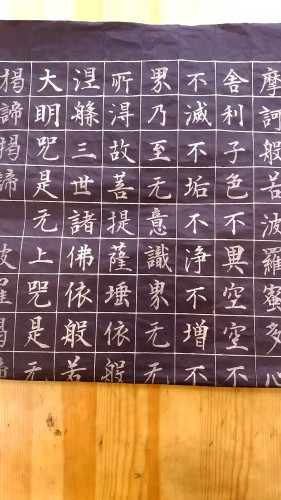 摩訶般若波羅蜜多心
舍利子色不異空空不
不滅不垢不浄不増不
界乃至无意識界无无
所得故菩提薩埵依般
涅槃三世諸佛依般若
大明咒是无上咒是无
揭諦揭諦波羅揭諦